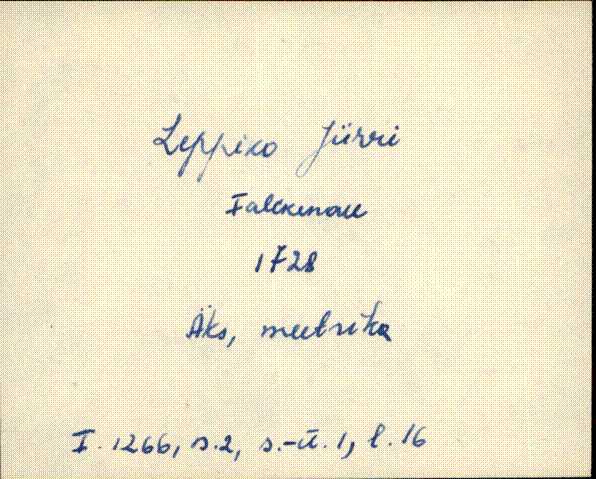 Leppiko Jürri
Falckenau
1728
Äks, meetrika
I. 1266, n. 2, s.-ü. 1, l. 16